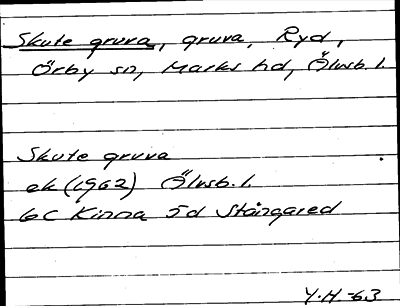 Skute gruva, gruva, Ryd,
Örby sn, Marks hd, Älvsb. l.
Skute gruva
ek (1962) Älvsb. l.
6C Kinna 5d Stångared
Y.H-63